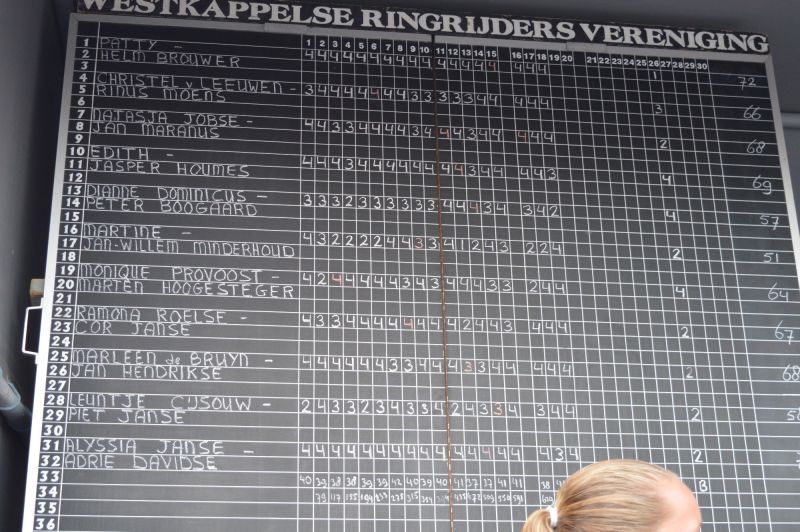 WESTKAPPELSE RINGRIJDERS VERENIGING
1 2 3 4 5 6 7 8 9 10 11 12 13 14 15 16 17 18 19 20 21 22 23 24 25 26 27 28 29 30
1 PATTY -
2 HELM BROUWER 4 4 4 4 4 4 4 4 4 4 4 4 4 4 4 4 4 4
3 1 72
4 CHRISTEL v LEEUWEN -
5 RINUS MOENS 3 4 4 4 4 4 4 4 3 3 3 3 3 4 4 4 4 4
6 3 66
7 NATASJA JOBSE -
8 JAN MARANUS 4 4 3 3 4 4 4 4 3 4 4 4 3 4 4 4 4 4
9 2 68
10 EDITH -
11 JASPER HOUMES 4 4 4 3 4 4 4 4 4 4 4 4 3 4 4 4 4 3
12 4 69
13 DIANNE DOMINICUS -
14 PETER BOOGAARD 3 3 3 2 3 3 3 3 3 3 4 4 4 3 4 3 4 2
15 4 57
16 MARTINE -
17 JAN-WILLEM MINDERHOUD 4 3 2 2 2 2 4 4 3 3 4 1 2 4 3 2 2 4
18 2 51
19 MONIQUE PROVOOST -
20 MARTEN HOOGESTEGER 4 2 4 4 4 4 4 3 4 3 4 4 4 3 3 2 4 4
21 4 64
22 RAMONA ROELSE -
23 COR JANSE 4 3 3 4 4 4 4 4 4 4 4 2 4 4 3 4 4 4
24 2 67
25 MARLEEN de BRUYN -
26 JAN HENDRIKSE 4 4 4 4 4 4 3 3 4 4 4 3 3 4 4 4 4 4
27 2 68
28 LEUNTJE CIJSOUW -
29 PIET JANSE 2 4 3 3 2 3 4 3 3 4 2 4 3 3 4 3 4 4
30 2
31 ALYSSIA JANSE -
32 ADRIE DAVIDSE 4 4 4 4 4 4 4 4 4 4 4 4 4 4 4 4 3 4
2
33 40 39 38 38 39 39 42 40 39 40 41 37 37 41 41
34 79 117 155
B
35
36